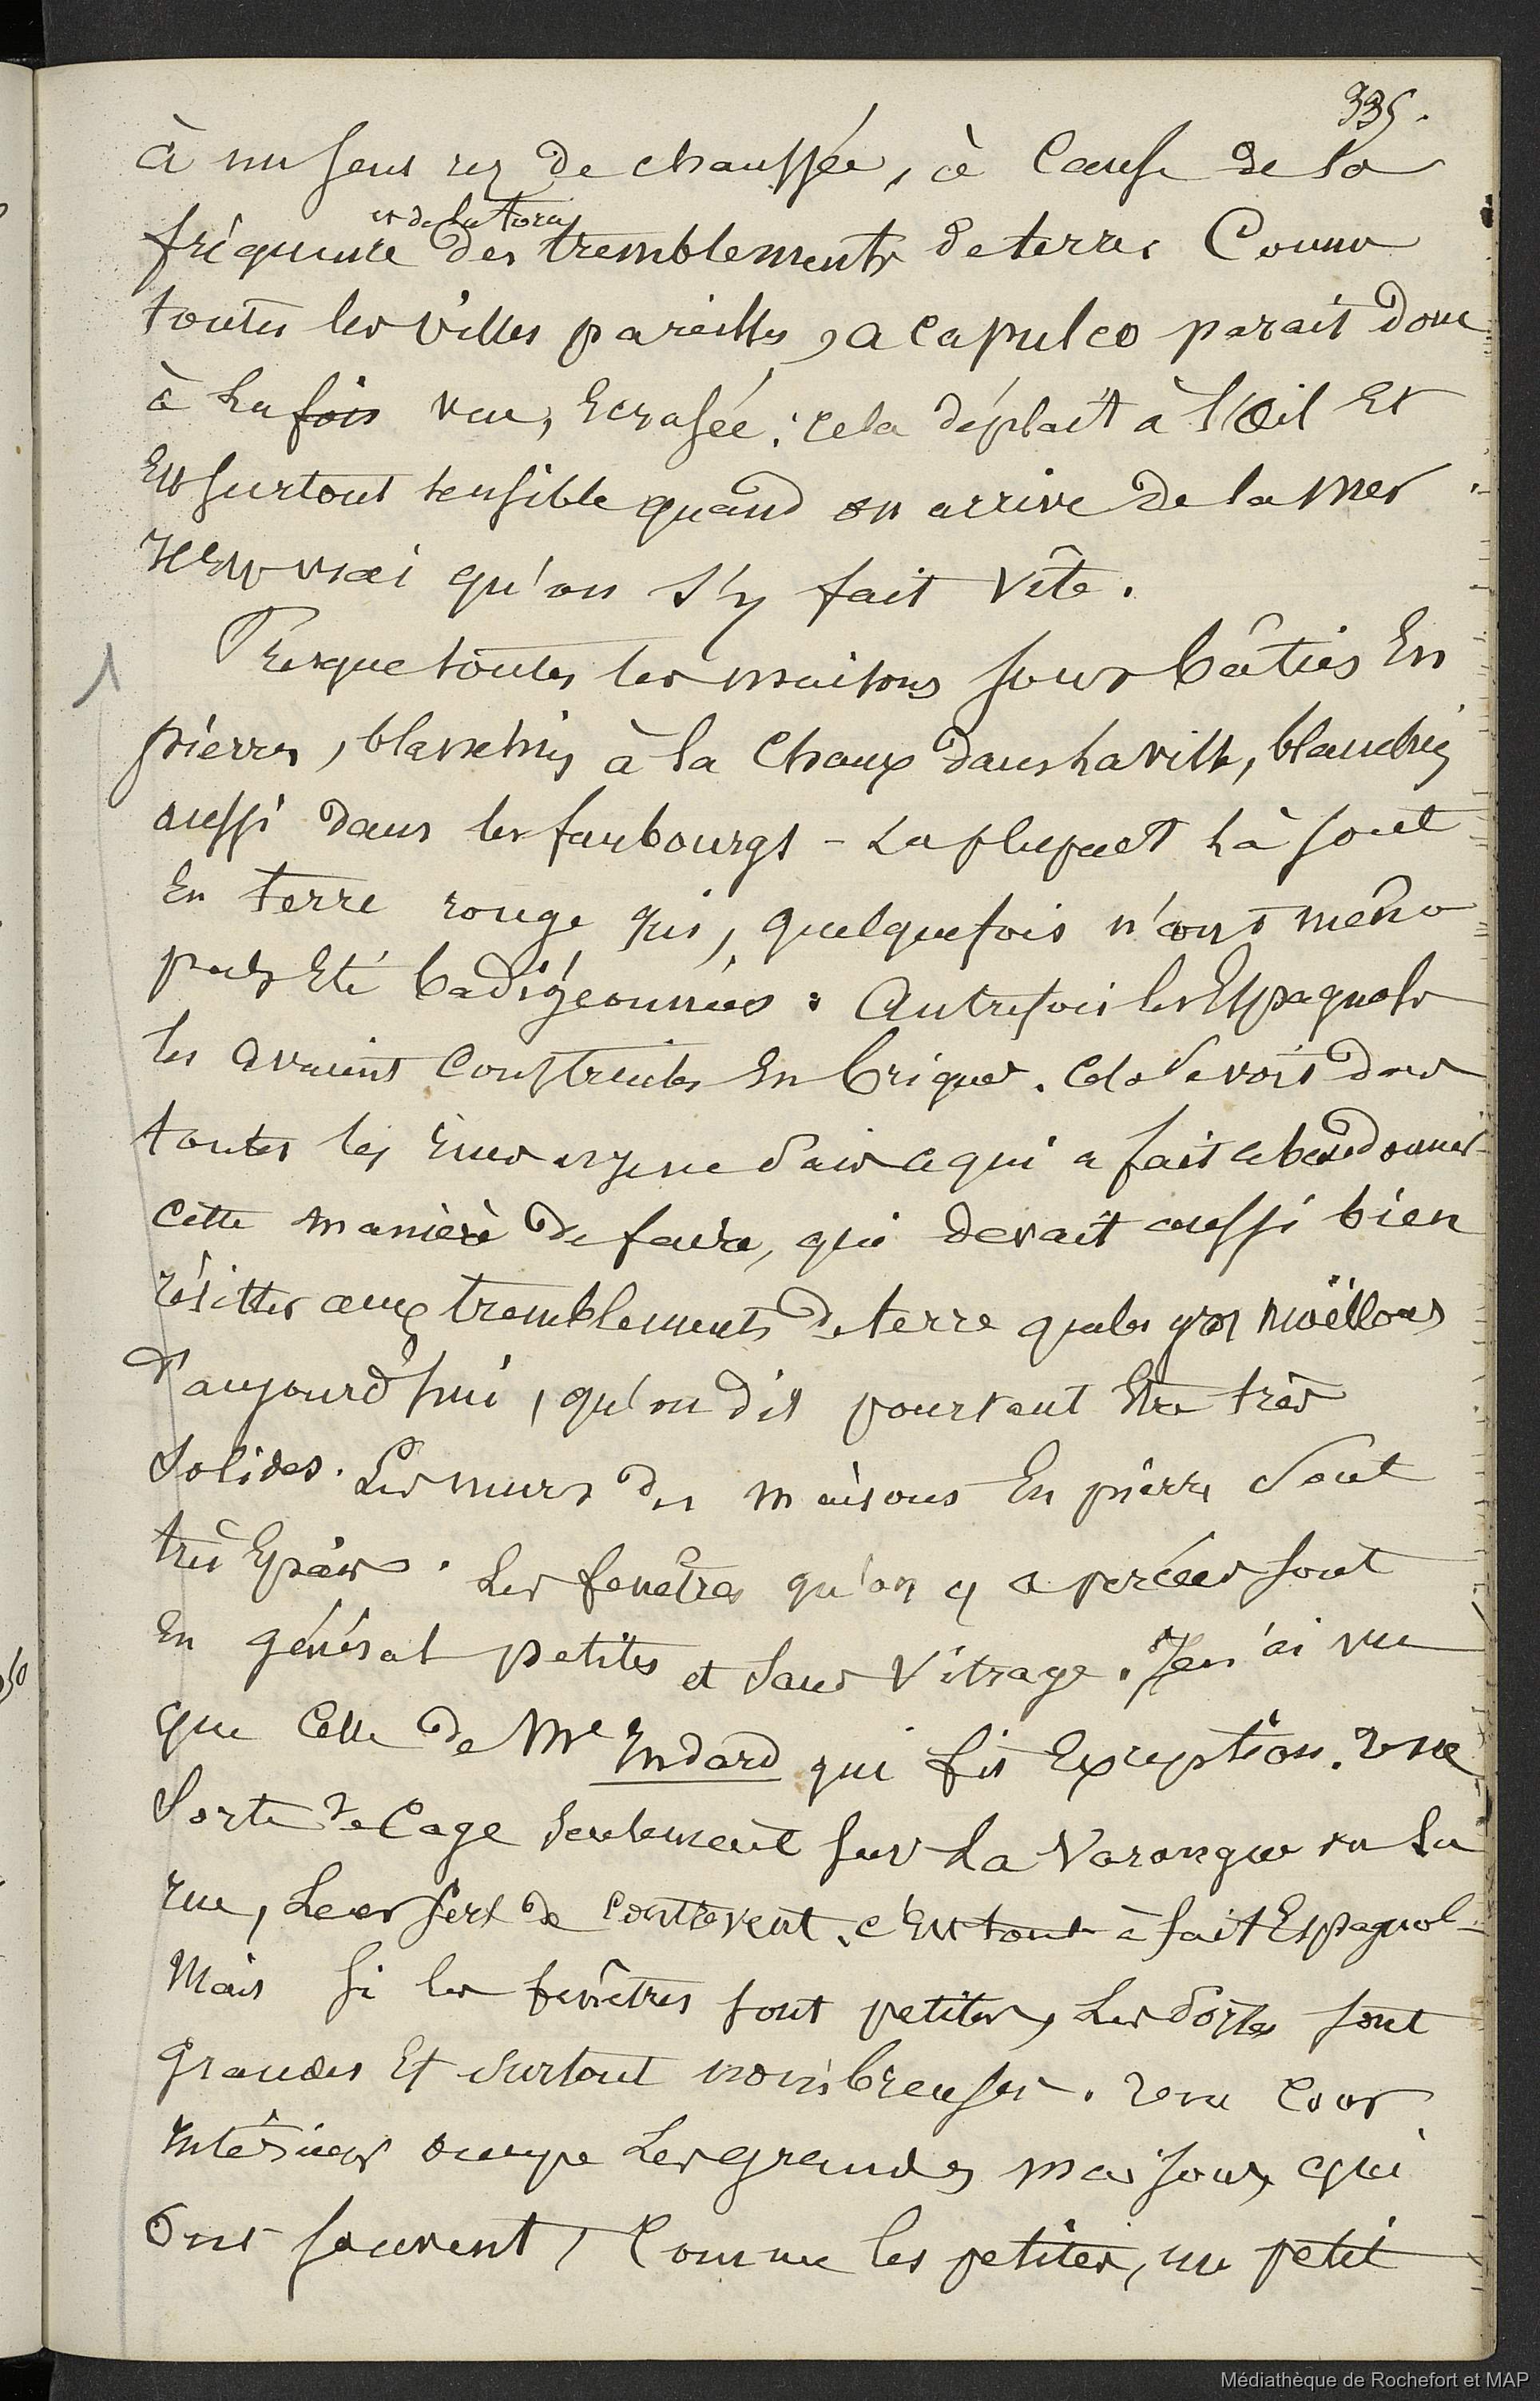 335.
à un seul rez de chaussée, à cause de la
et de la force
fréquence des tremblements de terre. Comme
toutes les villes pareilles, Acapulco parait donc
à la fois vue, écrasée ; cela déplait à l'œil et
est surtout sensible quand on arrive de la mer.
Il est vrai qu'on s'y fait vite.
Presque toutes les maisons sont bâties en
pierres, blanchies à la chaux dans la ville, blanchies
aussi dans les faubourgs - La plupart là sont
en terre rouge qui, quelquefois n'ont même
pas été badigeonnées : Autrefois les Espagnols
les avaient construites en briques. Cela se voit dans
toutes les rues et je ne sais ce qui a fait abandonner
cette manière de faire, qui devait aussi bien
résister aux tremblements de terre que les gros moëllons
d'aujourd'hui, qu'on dit pourtant être très
solides. Les murs des maisons en pierre sont
très épais. Les fenêtres qu'on y a percées sont
en général petites et sans vitrage. Je n'ai vu
que celle de Mr Indard qui fit exception. Une
sorte de cage seulement sur la varangue ou la
rue, leur sert de contrevent. C'est tout à fait Espagnol -
Mais si les fenêtres sont petites, les portes sont
grandes et surtout nombreuses. Une cour
intérieur occupe les grandes maisons qui
ont souvent, comme les petites, un petit
Médiathèque de Rochefort et MAP